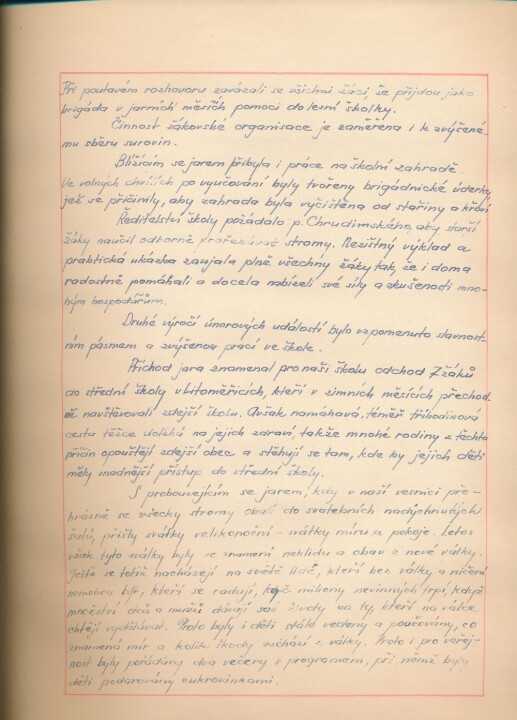 Při poutavém rozhovoru zavázali se všichni žáci, že přijdou jako
brigáda v jarních měsících pomoci do lesní školky.
Činnost žákovské organisace je zaměřena i k zvýšené-
mu sběru surovin.
Blížícím se jarem přibyla i práce na školní zahradě.
Ve volných chvílích po vyučování byly tvořeny brigádnické úderky,
jež se přičinily, aby zahrada byla vyčištěna od stařiny a křoví
Ředitelství školy požádalo p. Chrudimského, aby starší
žáky naučil odborně prořezávat stromy. Nezištný výklad a
praktická ukázka zaujala plně všechny žáky tak, že i doma
radostně pomáhali a docela nabízeli své síly a zkušenosti mno-
hým hospodářům.
Druhé výročí únorových událostí bylo vzpomenuto slavnost-
ním pásmem a zvýšenou prací ve škole.
Příchod jara znamenal pro naší školu odchod 7 žáků
do střední školy v Litoměřicích, kteří v zimních měsících přechod-
ně navštěvovali zdejší školu. Avšak namáhavá, téměř tříhodinová
cesta těžce doléhá na jejich zdraví, takže mnohé rodiny z těchto
příčin opouštějí zdejší obec a stěhují se tam, kde by jejich děti
měly snadnější přístup do střední školy.
S probouzejícím se jarem, kdy v naší vesnici pře-
krásně se všecky stromy obalí do svatebních nadýchnutých
šatů, přišly svátky velikonoční - svátky míru a pokoje. Letos
však tyto svátky byly ve znamení neklidu a obav z nové války.
Ještě se totiž nacházejí na světě lidé, kteří bez války a ničení
nemohou být, kteří se radují, když miliony nevinných trpí, když
množství otců a mužů dávají své životy za ty, kteří na válce
chtějí vydělávat. Proto byly i děti stále vedeny a poučovány, co
znamená mír a kolik škody vzchází z války. Proto i pro veřej-
nost byly pořádány dva večery s programem, při němž byly
děti podarovány cukrovinkami.